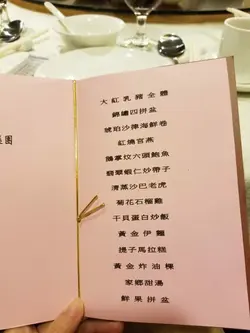 集團
大紅乳豬全體
錦繡四拼盆
琥珀沙律海鮮卷
紅燒官燕
鵝掌炆六頭鮑魚
翡翠蝦仁炒帶子
清蒸沙巴老虎
菊花石榴雞
干貝蛋白炒飯
黃金伊麵
提子馬拉糕
黃金炸油粿
家鄉甜湯
鮮果拼盆